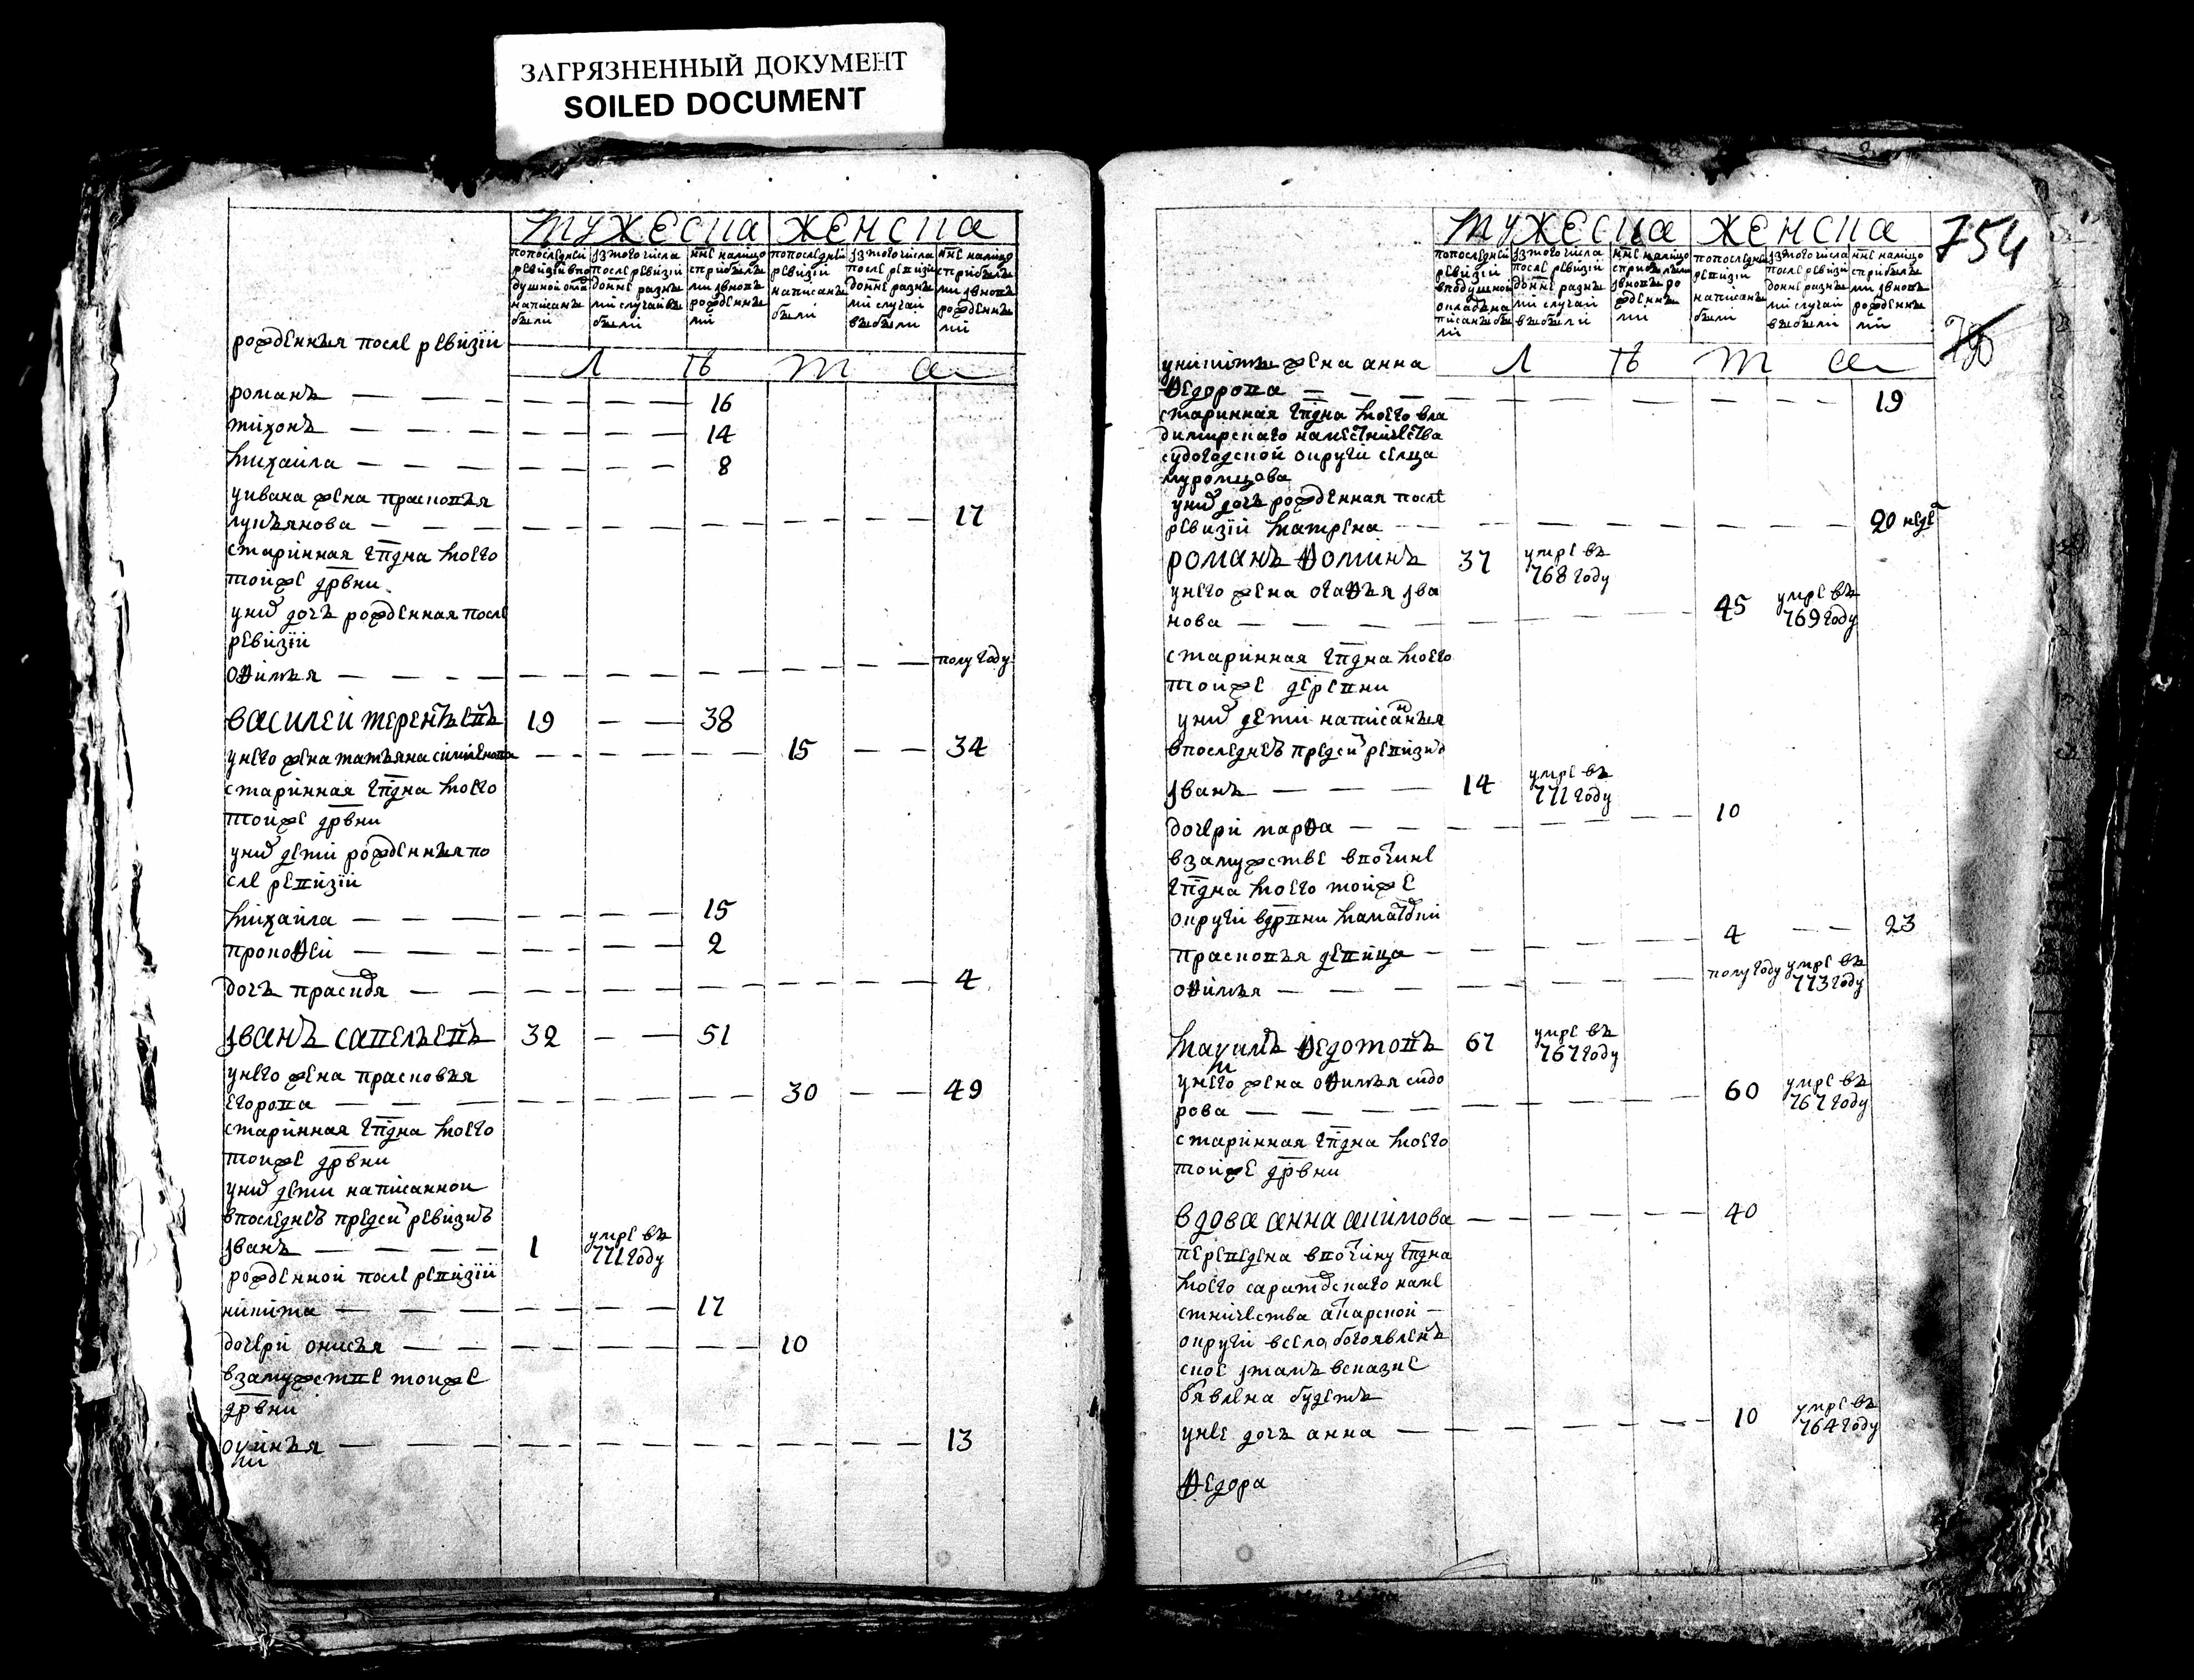 ЗАГРЯЗНЕННЫЙ ДОКУМЕНТ
SOILED DOCUMENT
мужеска женска
попоследней ревизии вподушной оклад написаны были
изтого числа после ревизии донне разными случаивы были
нне налицо сприбылыми ивновь рожденными
попоследней ревизии написаны были
изтого числа после ревизии донне разными случаи выбыли
нне налицо сприбылыми ивновь рожденными
лѣта
рожденныя после ревизiи
романъ 16
тихонъ 14
михаила 8
уивана жена прасковья
лукьянова 17
старинная гпдна моего
тойже дрвни
уних дочь рожденная после
ревизiи
офимья полугоду
василей терентьевъ 19 38
унего жена татьяна симионова 15 34
старинная гпдна моего
тойже дрвни
уних дети рожденныя по
сле ревизiи
михаила 15
прокофей 2
дочь праскодя 4
иванъ савельевъ 32 51
унего жена прасковья
егорова 30 49
старинная гпдна моего
тойже дрвни
уних дети написанной
впоследнеъ предсиъ ревизиъ
иванъ 1 умре въ 771 году
рожденной после ревизiи
никита 17
дочери онисья 10
взамужстве тойже
дрвни
аксинья 13
мужеска женска 754
попоследней ревизии вподушной оклад написаны были
изтого числа после ревизии донне разными случаи выбыли
нне налицо сприбылыми ивновь рожденными
попоследней ревизии написаны были
изтого числа после ревизии донне разными случаи выбыли
нне налицо сприбылыми ивновь рожденными
лѣта
уникиты жена анна
федорова 19
старинная гпдна моего вла
димирскаго наместничества
судогодской округи селца
муромцова
уних дочь рожденная после
ревизiи матрена 20 недел
романъ фоминъ 37 умре въ 768 году
унего жена агафья ива
нова 45 умре въ 769 году
старинная гпдна моего
тойже деревни
уних дети написаныя
впоследнеъ предсиъ ревизиъ
иванъ 14 умре въ 771 году
дочери марфа 10
взамужстве ввотчине
гпдна моего тойже
округи вдрвни
прасковья девица 4 23
офимья полугоду умре въ 773 году
максимъ федотовъ 67 умре въ 767 году
унего жена офимья сидо
рова 60 умре въ 767 году
старинная гпдна моего
тойже дрвни
вдова анна акимова 40
переведена ввотчину гпдна
моего саратовскаго наме
стничества аткарской
округи всело богоявленъ
ское итамъ всказке
обявлена будетъ
унее дочь анна 10 умре въ 764 году
федора